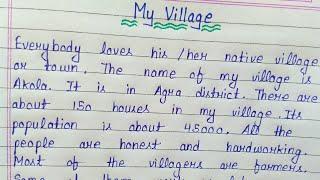 My Village
Everybody loves his/her native village
or town. The name of my village is
Akola. It is in Agra district. There are
about 150 houses in my village. Its
population is about 45000. All the
people are honest and hardworking.
Most of the villagers are farmers.
Some of them